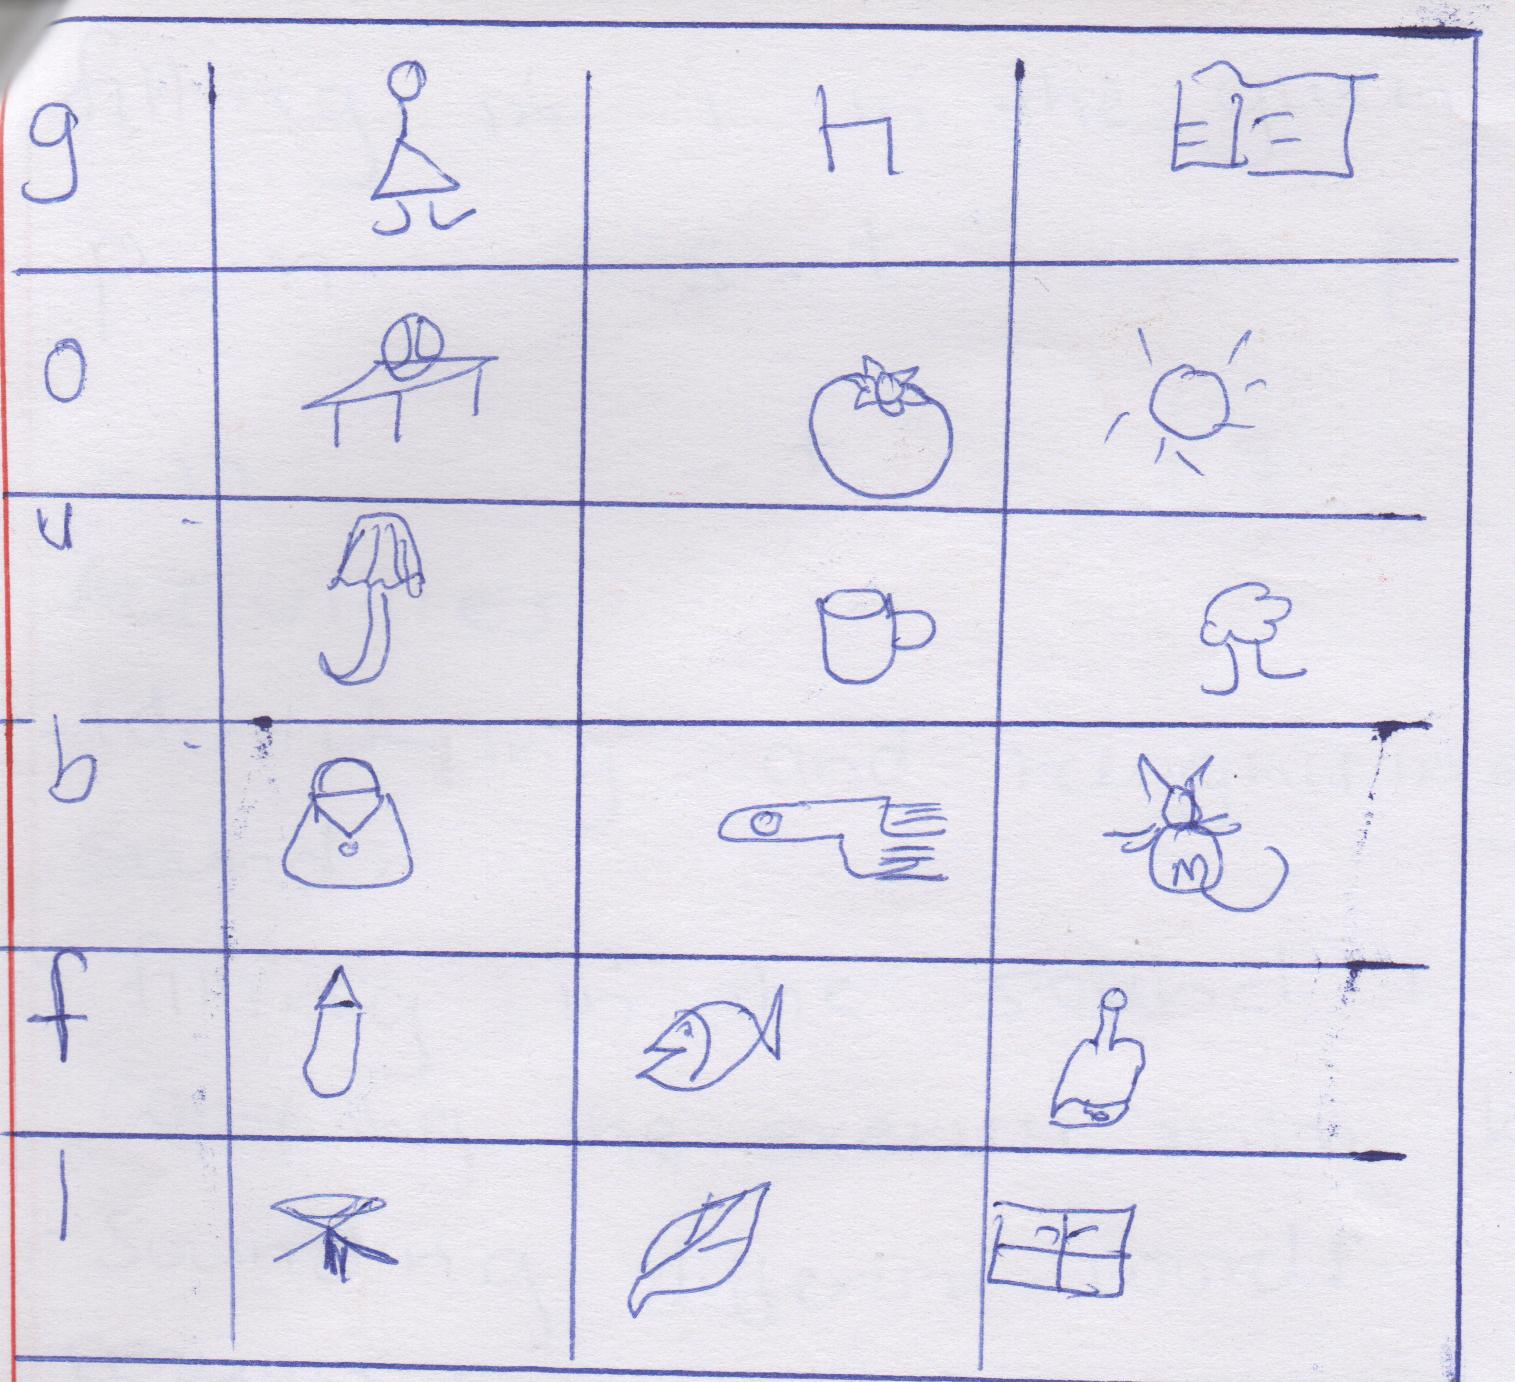 g
o
u
b
f
l